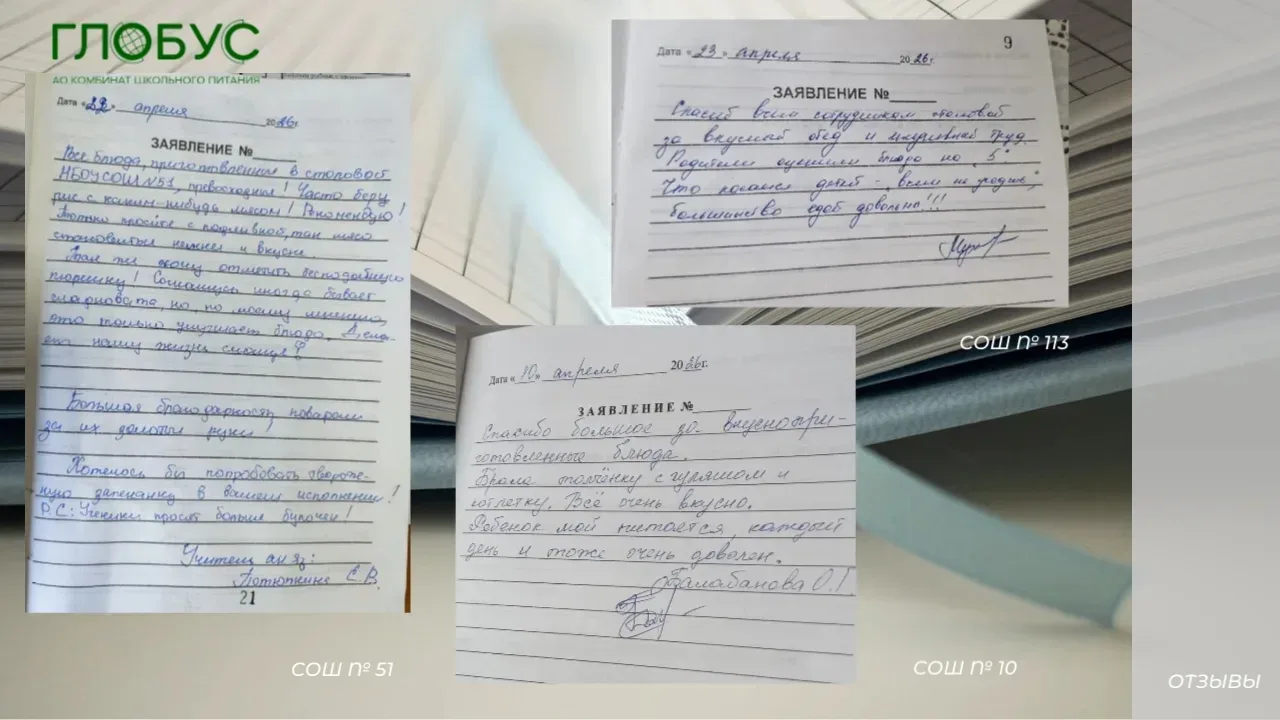 ГЛОБУС
АО КОМБИНАТ ШКОЛЬНОГО ПИТАНИЯ
Дата «22» апреля 2026г.
ЗАЯВЛЕНИЕ №
Все блюда, приготовленные в столовой
МБОУСОШ №51, превосходны! Часто беру
рис с каким-нибудь мясом! Рекомендую!
Только просите с подливной, так мясо
становится нежнее и вкуснее.
Так же хочу отметить бесподобную
пюрешку! Соглашусь иногда бывает
сладковата, но, по моему мнению,
это только улучшает блюдо.
нашу жизнь слаще!
Большая благодарность поварам
за их золотые руки!
Хотелось бы попробовать творож-
ную запеканку в вашем исполнении!
P.S: Ученики просят больше булочек!
Учитель ан яз:
С.В.
21
СОШ № 51
9
Дата «23» апреля 2026г.
ЗАЯВЛЕНИЕ №
Спасибо всем сотрудникам столовой
за вкусный обед и труд.
Родители оценили блюда на "5"
Что касается детей - "всем не угодишь",
большинство едой довольны!!!
СОШ № 113
Дата «10» апреля 2026г.
ЗАЯВЛЕНИЕ №
Спасибо большое за вкусно при-
готовленные блюда.
Брала толчёнку с гуляшом и
котлетку. Всё очень вкусно.
Ребенок мой питается каждый
день и тоже очень доволен.
Балабанова О.Г.
СОШ № 10
ОТЗЫВЫ